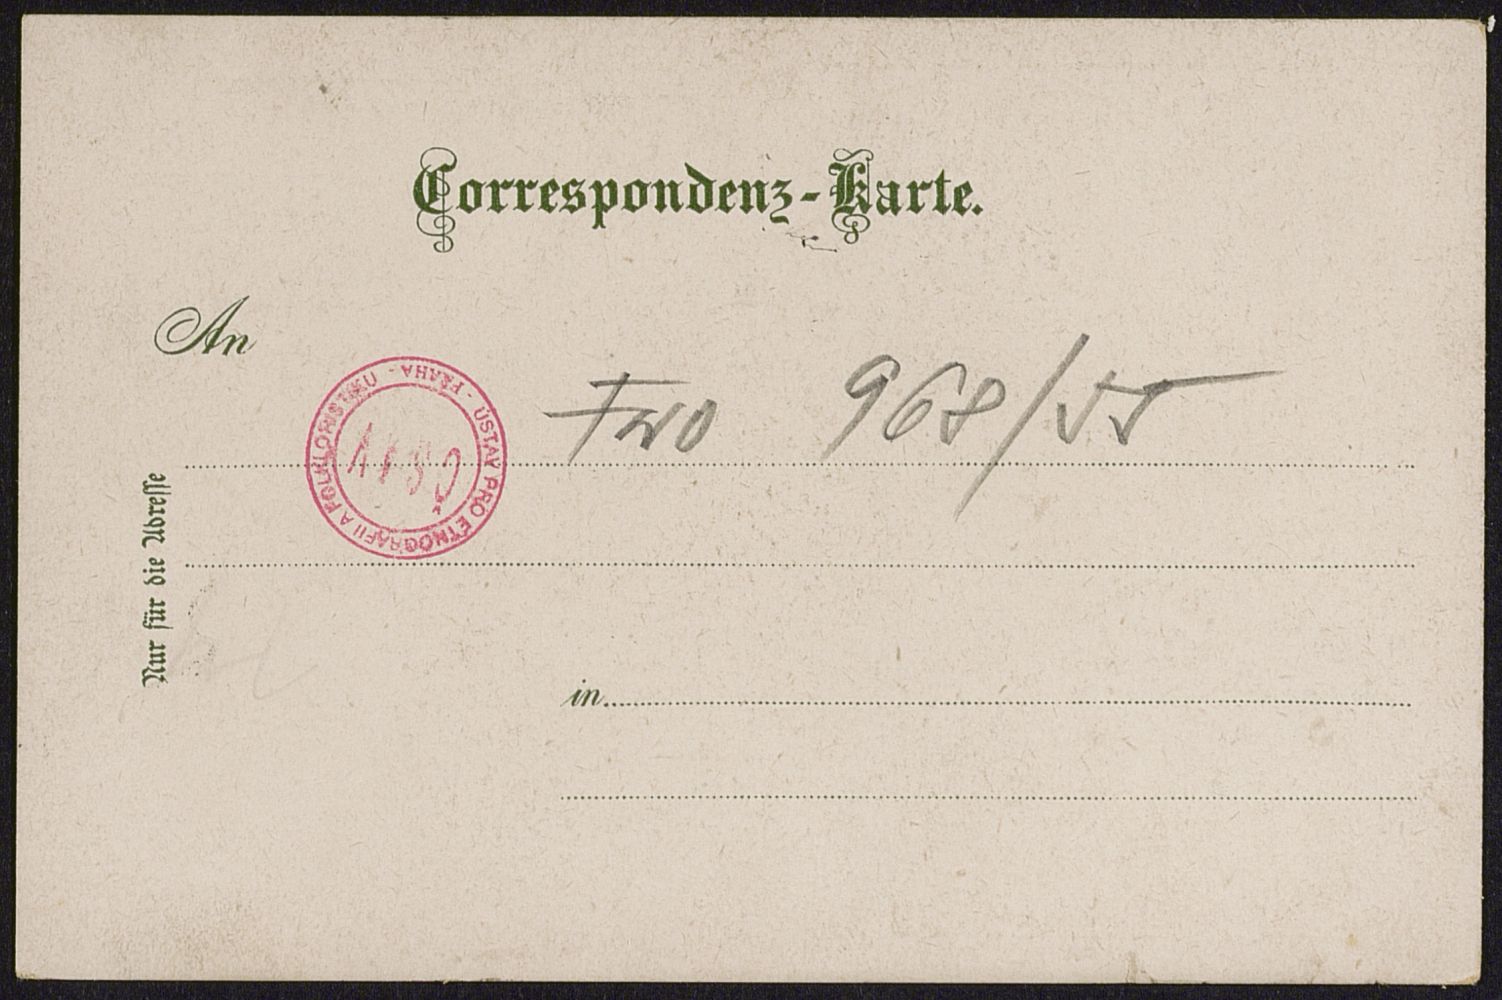 Correspondenz-Karte.
An
ÚSTAV PRO ETNOGRAFII A FOLKLORISTIKU - PRAHA -
ČSAV
968/55
Nur für die Adresse
in